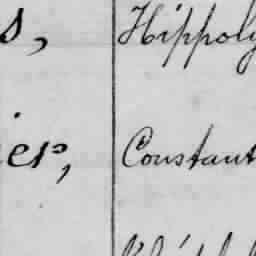 s, Hippoly
ier, Constant